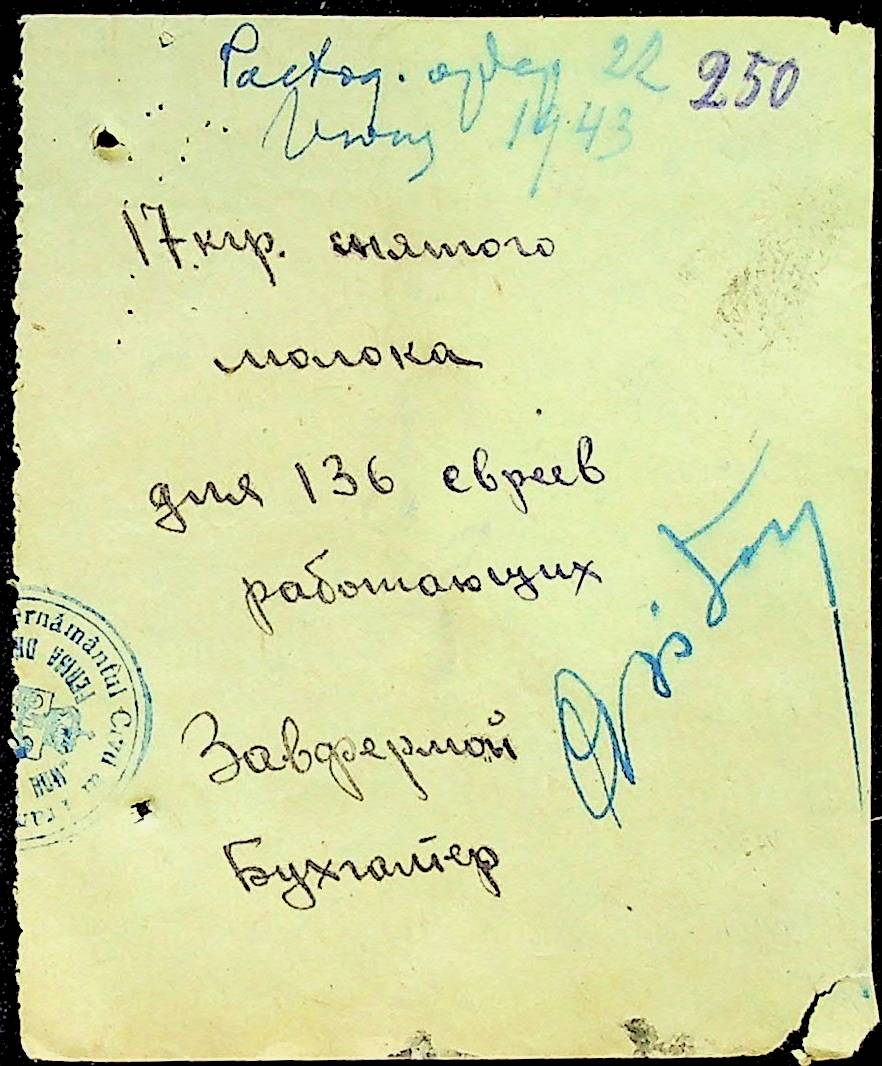 Расход. ордер 22
250
Июнь 1943
17 кгр. снятого
молока
для 136 евреев
работающих
Завфермой
Бухгалтер